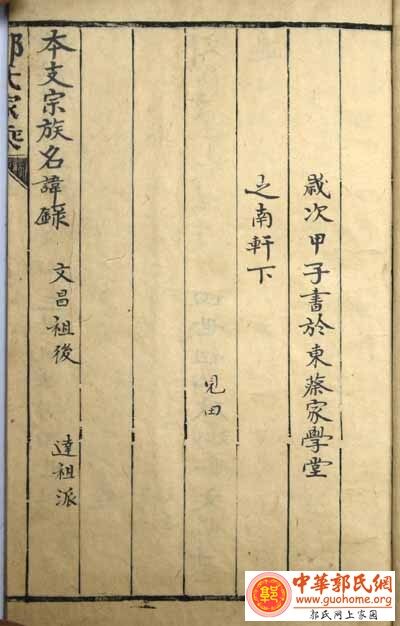 歲次甲子書於東蔡家學堂
之南軒下
見田
本支宗族名諱錄 文昌祖後 達祖派
郭氏家乘
中華郭氏網
www.guohome.org
郭氏网上家園